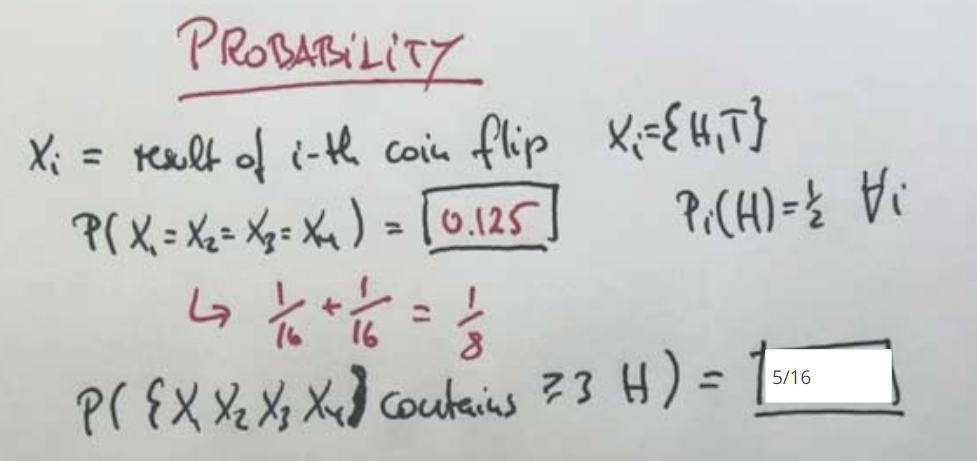 PROBABILITY
Xi = result of i-th coin flip Xi={H,T}
P(X1=X2=X3=X4) = 0.125 Pi(H)=½ ∀i
↳ 1/16 + 1/16 = 1/8
P({X X2 X3 X4} contains ≥3 H) = 5/16